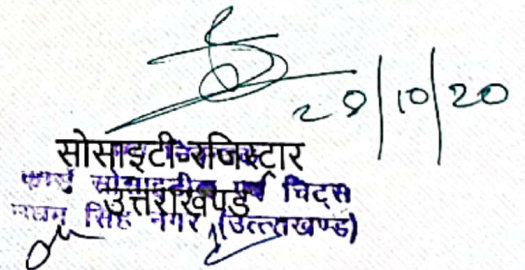 29/10/20
सोसाइटी रजिस्ट्रार
उत्तराखण्ड
सोसाइटीज एवं चिट्स
सिंह नगर (उत्तराखण्ड)